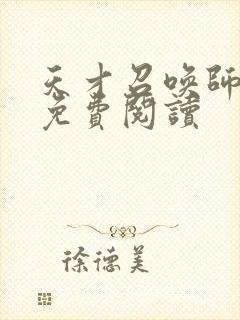 天才召喚師
免費閱讀
徐德美